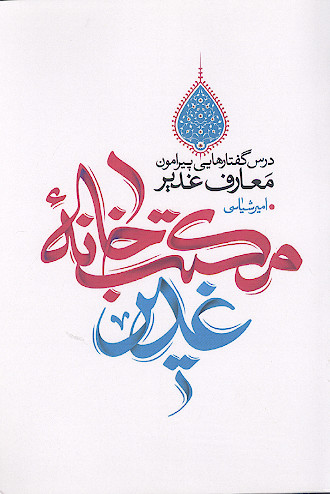 درس‌گفتارهایی پیرامون
مَعارف غدیر
امیر شیاسی
مکتب‌خانهٔ
غدیر